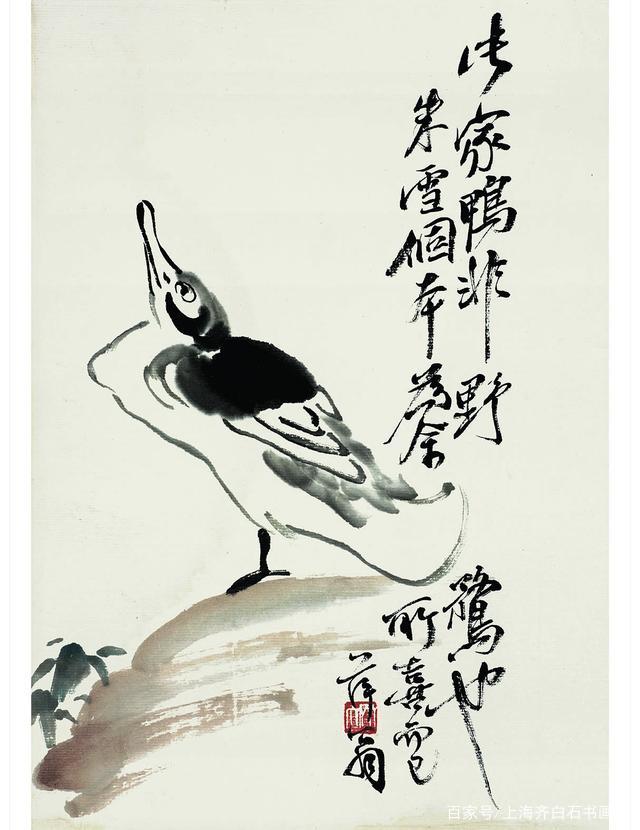 此家鴨非野鶩也
朱雪個本爲余所喜而已
萍翁
百家号/上海齐白石书画